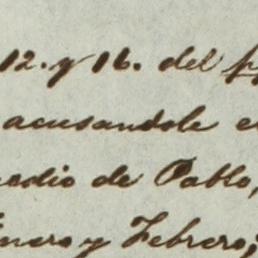 12. y 16. del
acusandole
de Pablo,
Enero y Febrero;